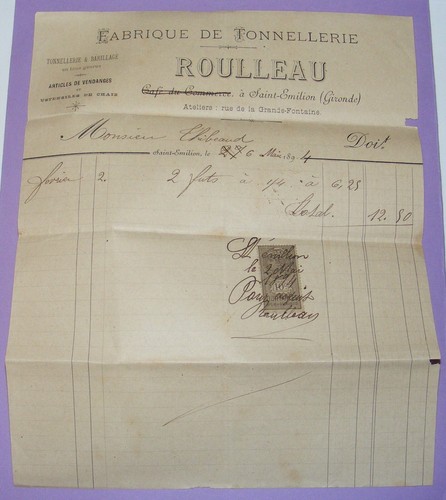 FABRIQUE DE TONNELLERIE
TONNELLERIE & BARILLAGE
en tout genres
ARTICLES DE VENDANGES
ET
USTENSILES DE CHAIS
ROULLEAU
Café du Commerce, à Saint-Emilion (Gironde)
Ateliers : rue de la Grande-Fontaine
Monsieur Thibeaud Doit
Saint-Emilion, le 6 Mai 1894
février 2. 2 futs à à 6,25
Total. 12.50
St Emilion
le 2 Mai
Pour acquit
Roulleau